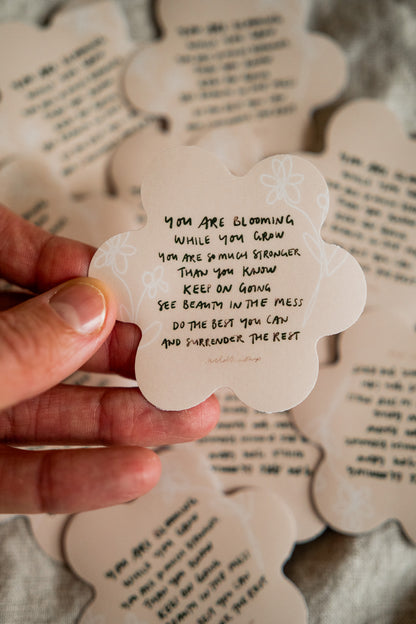 YOU ARE BLOOMING
WHILE YOU GROW
YOU ARE SO MUCH STRONGER
THAN YOU KNOW
KEEP ON GOING
SEE BEAUTY IN THE MESS
DO THE BEST YOU CAN
AND SURRENDER THE REST